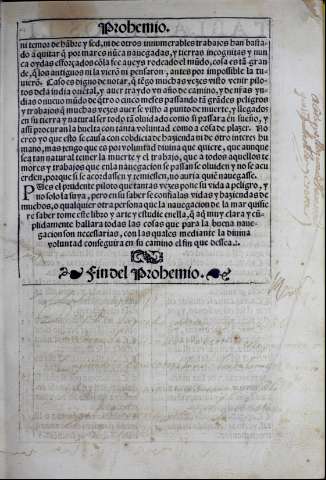 Prohemio.
ni temor de hãbre y sed, ni de otros innumerables trabajos han basta-
do a quitar q̃ por mares nũca nauegadas, y tierras incognitas y nun
ca oydas esforçados cõ la fee aueys rodeado el mũdo, cosa es tã gran
de, q̃ los antiguos ni la vierõ ni pensaron, antes por impossible la tu-
uierõ. Caso es digno de notar, q̃ tẽgo muchas vezes visto venir pilo-
tos dela india oriẽtal, y auer traydo vn año de camino, y de nr̃as yn-
dias o nueuo mũdo de q̃tro o cinco meses passando tã grãdes peligros
y trabajos; q̃ muchas vezes auer se visto a punto de muerte, y llegados
en su tierra y natural ser todo tã oluidado como si passara en sueño, y
assi procuran la buelta con tanta voluntad como a cosa de plazer. No
creo yo que esso se causa con cobdicia de haziẽda ni de otro interes hu
mano, mas pienso que es por voluntad diuina que quiere, que aunque
sea tan natural temer la muerte y el trabajo, que a todos aquellos te
mores y trabajos que enla nauegacion se passan se oluiden y no se acu
erden, porque si se acordassen y temiessen, no auria quiẽ nauegasse.
Pues el prudente piloto que tantas vezes pone su vida a peligro, y
no solo la suya, pero en su saber se confia las vidas y haziendas de
muchos, o qualquier otra persona que la nauegacion de la mar quisie
re saber tome este libro y arte y estudie enella, q̃ aq̃ muy clara y cũ-
plidamente hallara todas las cosas que para la buena naue-
gacion son necessarias, con las quales mediante la diuina
voluntad conseguira en su camino el fin que dessea.
Fin del Prohemio.